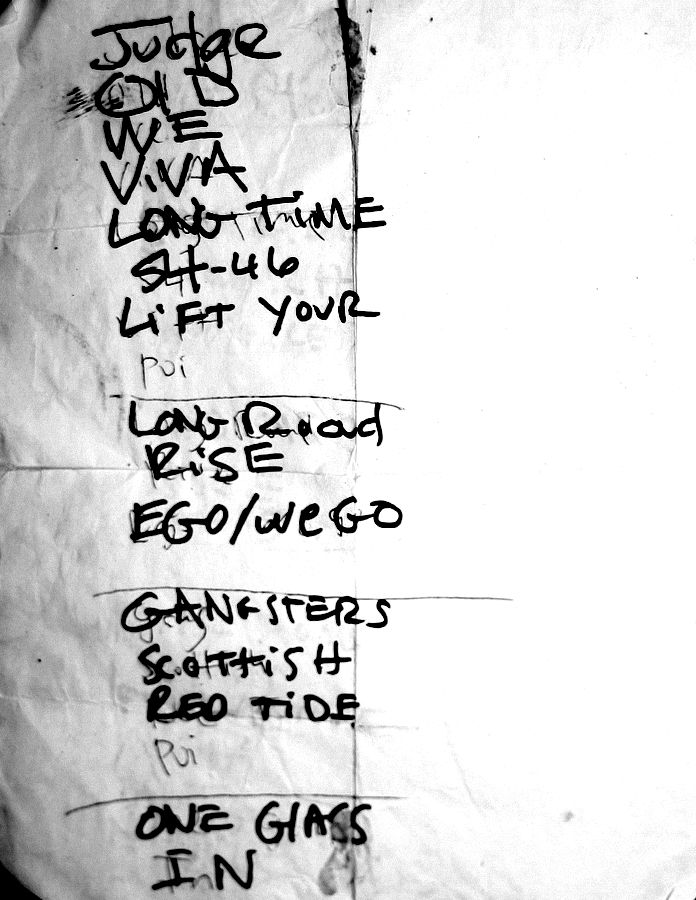 Judge
OlD
WE
ViVA
LONG TiME
SH-46
LiFT YOUR
Poi
LONG Road
RiSE
EGO/WeGO
GANGSTERS
SCOTTiSH
RED TiDE
Poi
ONE GlASS
IN